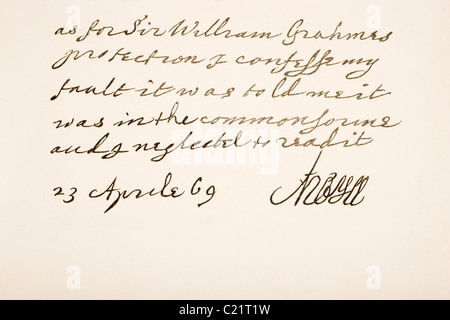 as for Sir William Grahmes
protection I confesse my
fault it was told me it
was in the common forme
and I neglected to read it
23 Aprile 69
Argyll
alamy stock photo
C2T1TW
www.alamy.com